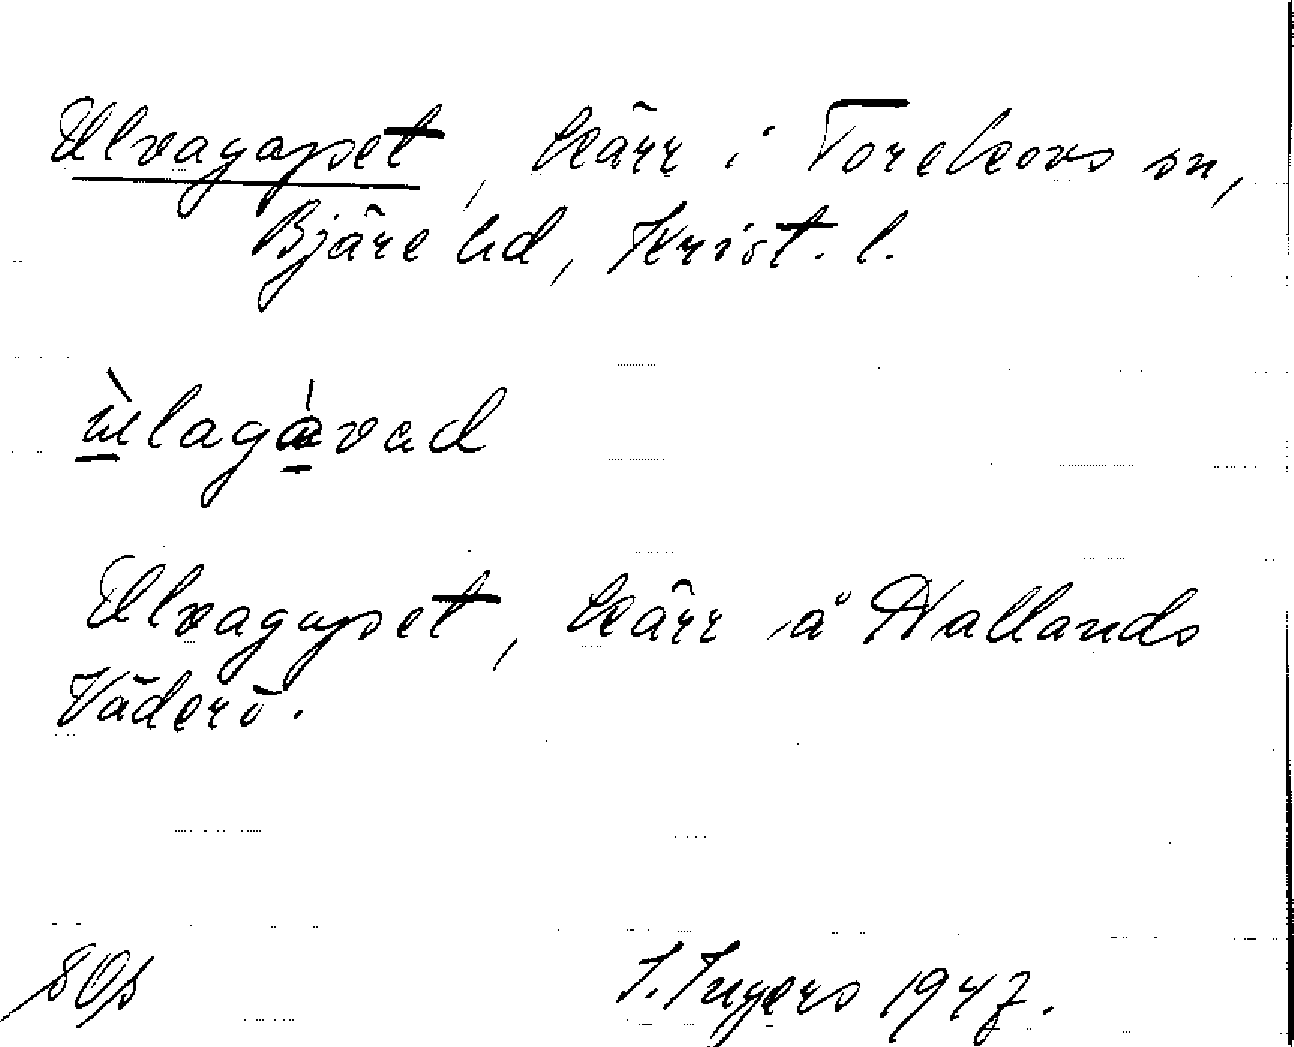 Ulvagapet, kärr i Torekovs sn,
Bjäre hd, Krist. l.
ùlagàvad
Ulvagapet, kärr å Hallands
Väderö.
I. Ingers 1947.